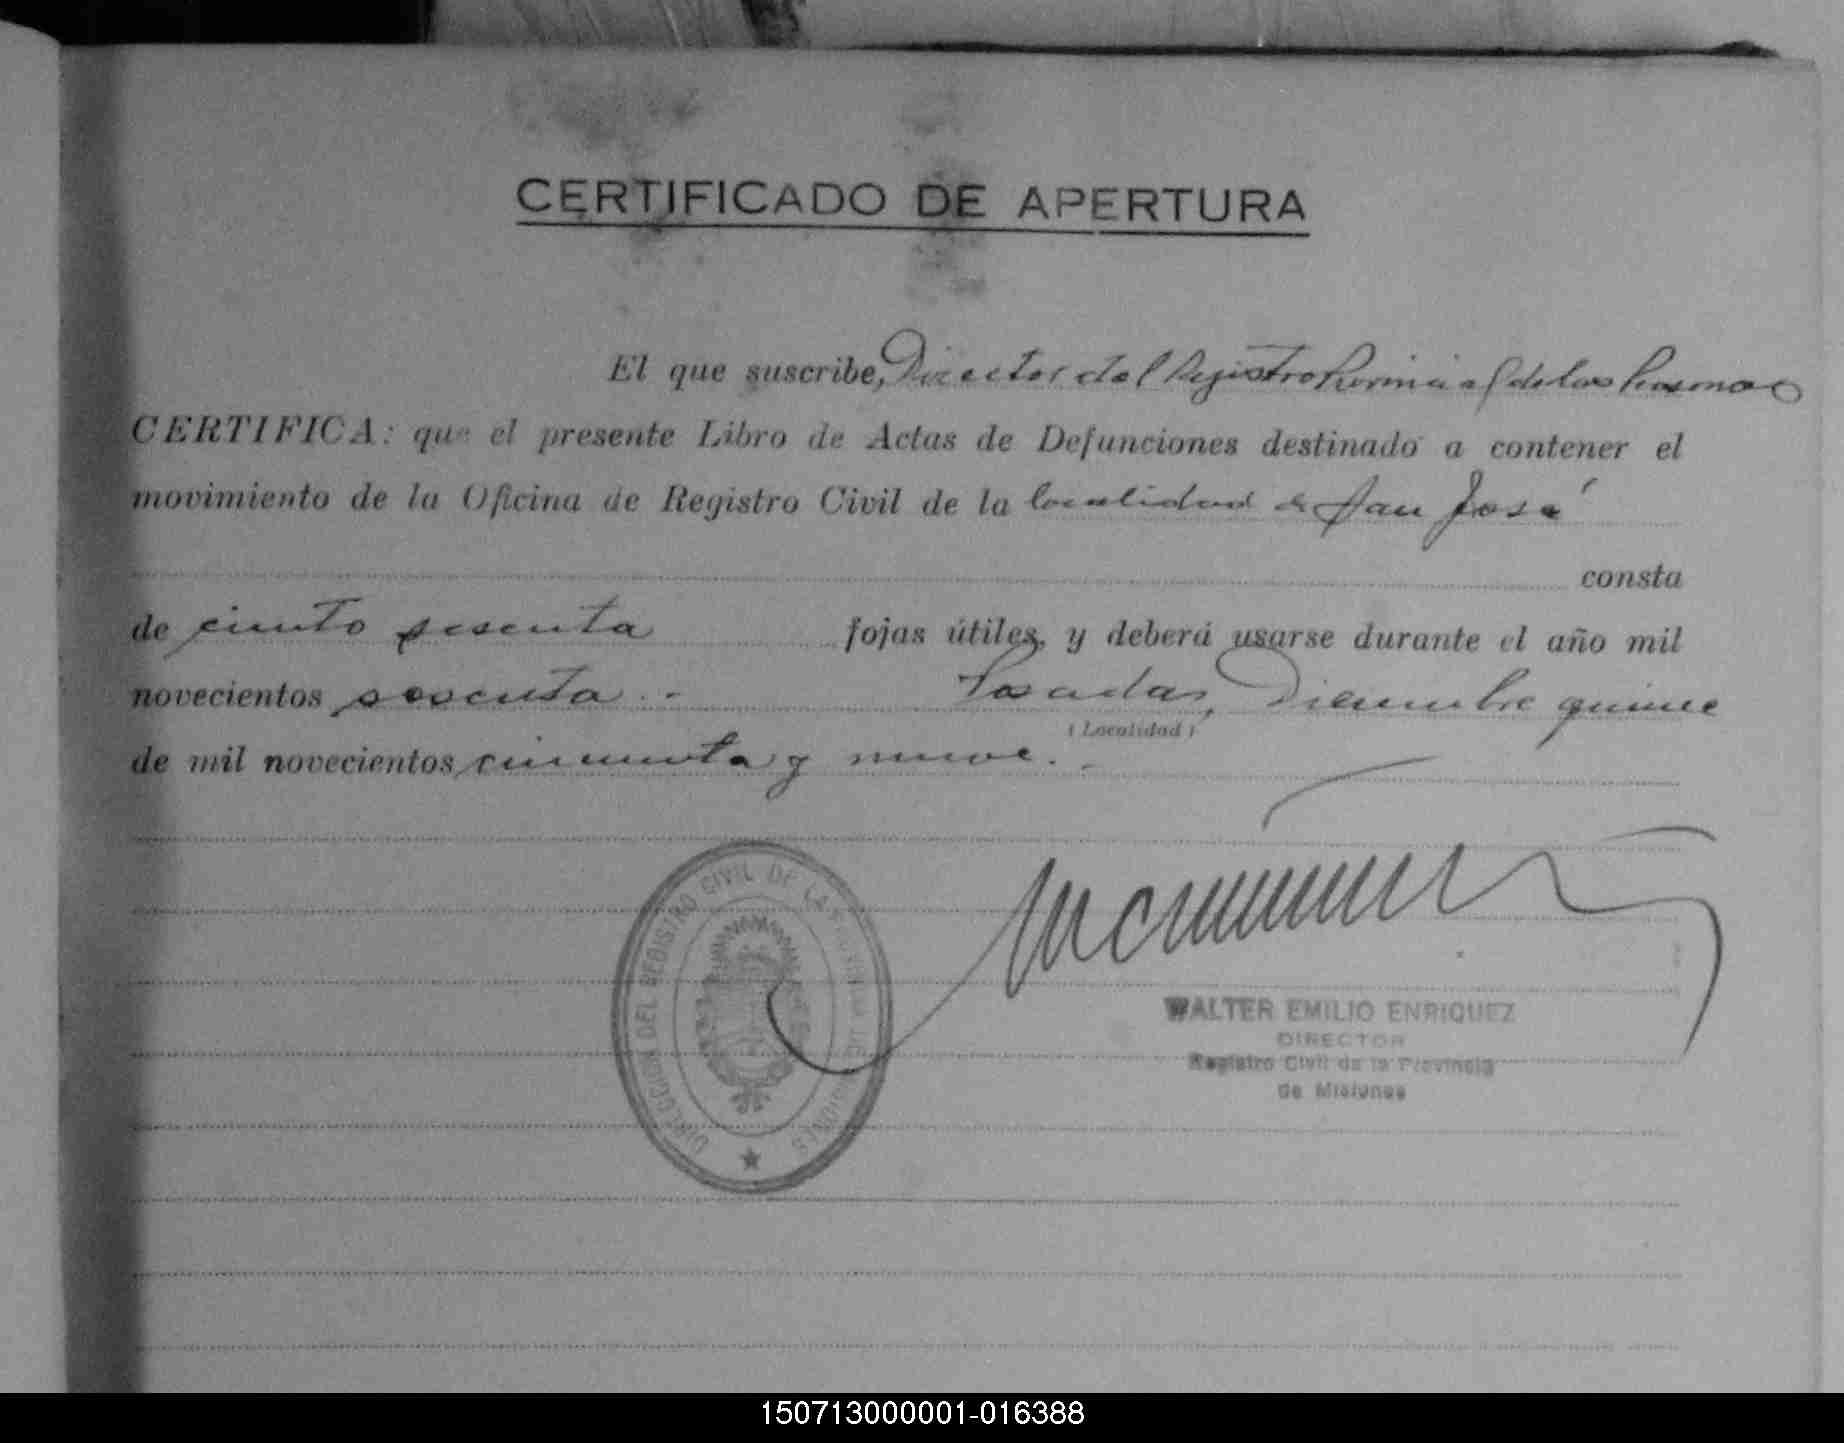 CERTIFICADO DE APERTURA
El que suscribe, Director del Registro Provincial de las Personas
CERTIFICA: que el presente Libro de Actas de Defunciones destinado a contener el
movimiento de la Oficina de Registro Civil de la localidad de San José
consta
de ciento sesenta fojas útiles, y deberá usarse durante el año mil
novecientos sesenta.- Posadas, Diciembre quince
(Localidad)
de mil novecientos cincuenta y nueve.-
DIRECCION DEL REGISTRO CIVIL DE LA PROVINCIA DE MISIONES
WALTER EMILIO ENRIQUEZ
DIRECTOR
Registro Civil de la Provincia
de Misiones
150713000001-016388